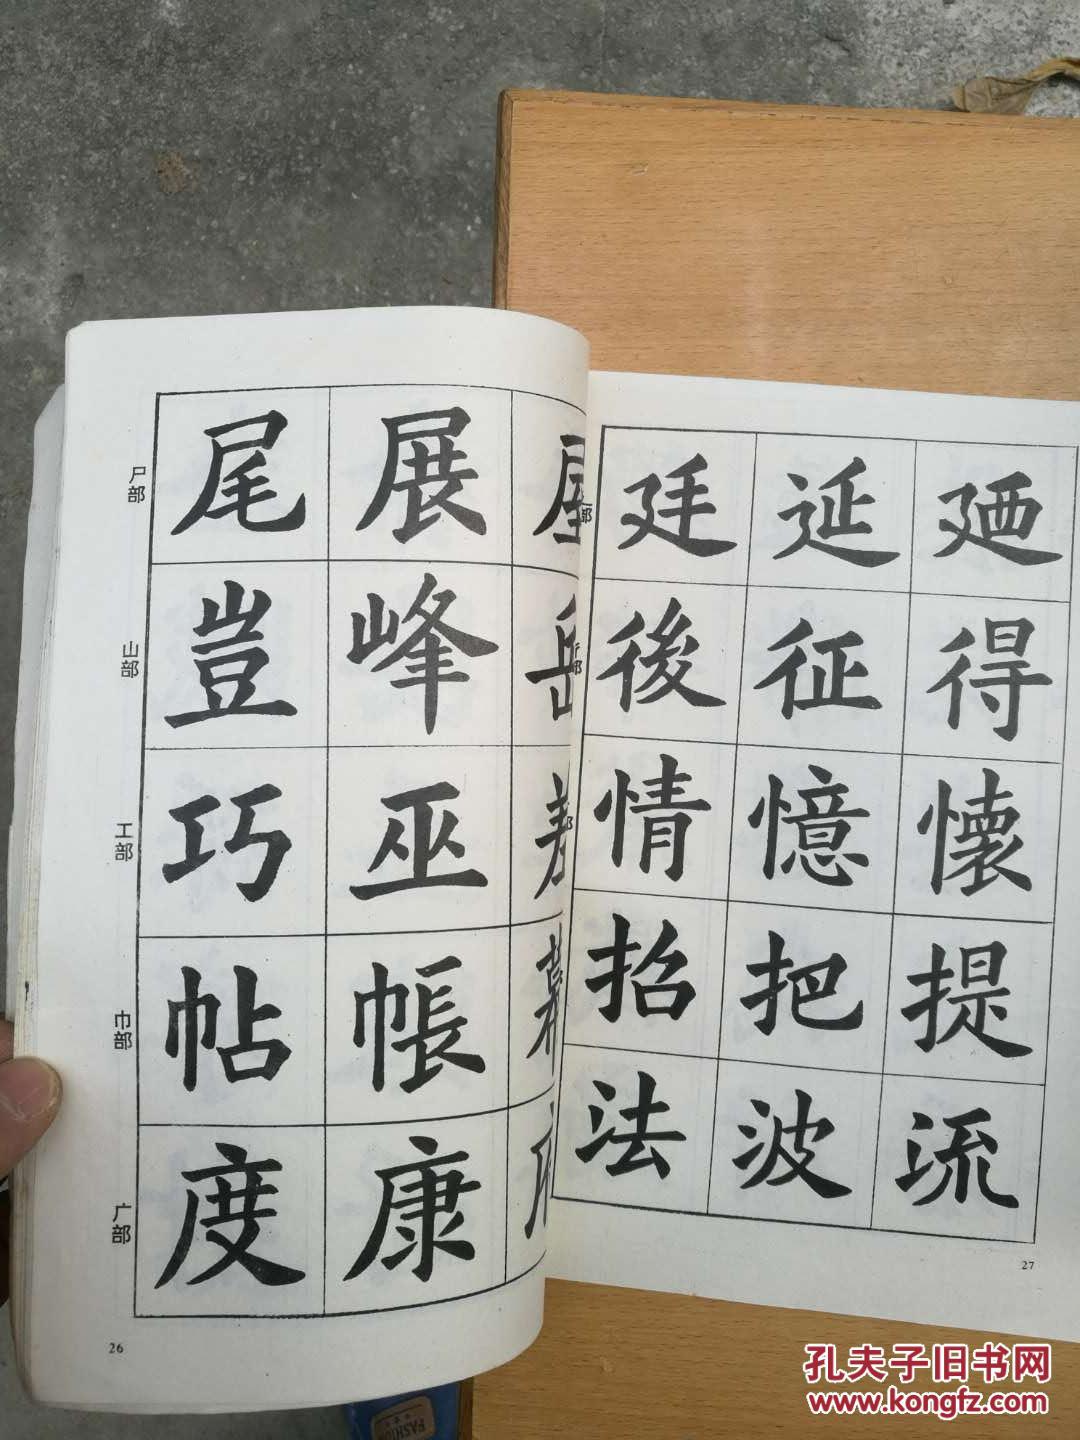 尸部 尾 展
山部 豈 峰 岳
工部 巧 巫 差
巾部 帖 帳 幕
广部 度 康
26
部 廷 延 廼
後 征 得
情 憶 懷
招 把 提
法 波 流
27
孔夫子旧书网
www.kongfz.com
FASHION